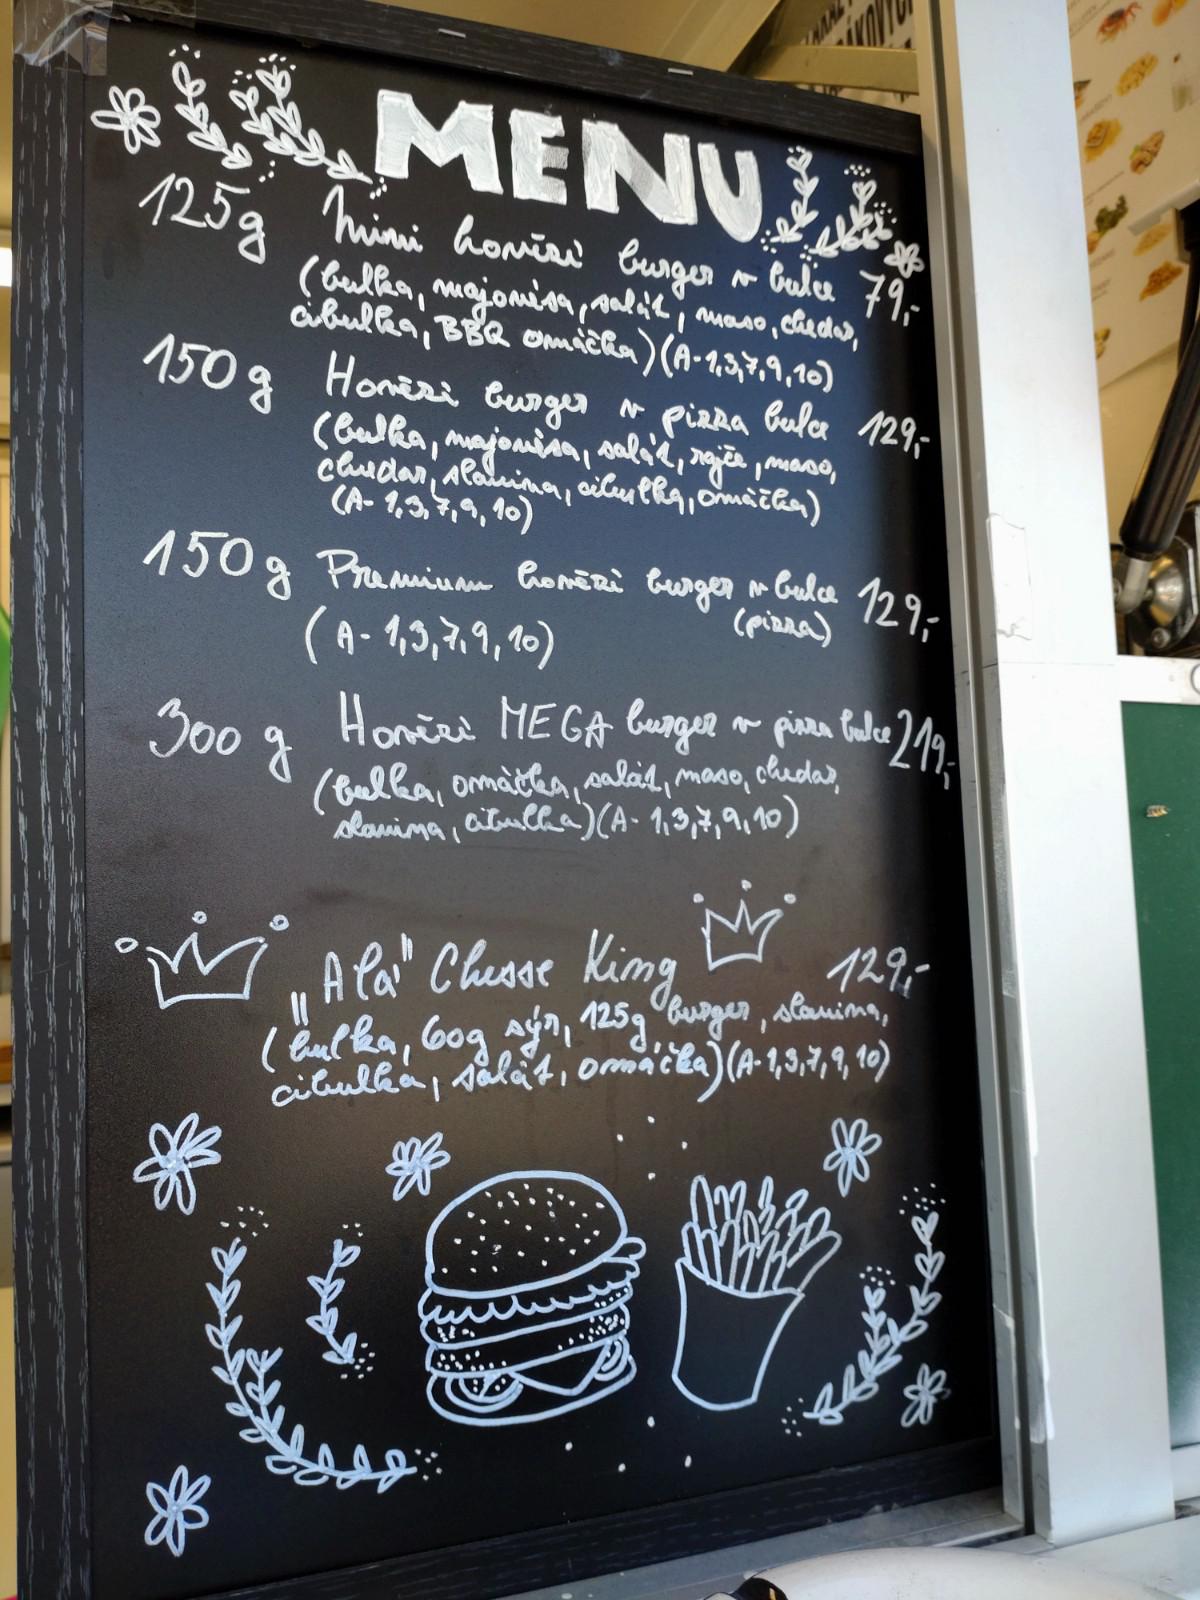 MENU
125g Mini hovězí burger v bulce 79,-
(bulka, majonésa, salát, maso, chedar,
cibulka, BBQ omáčka) (A-1,3,7,9,10)
150g Hovězí burger v pizza bulce 129,-
(bulka, majonésa, salát, rajče, maso,
chedar, slanina, cibulka, omáčka)
(A-1,3,7,9,10)
150g Premium hovězí burger v bulce 129,-
(pizza)
(A-1,3,7,9,10)
300g Hovězí MEGA burger v pizza bulce 219,-
(bulka, omáčka, salát, maso, chedar,
slanina, cibulka) (A-1,3,7,9,10)
„Alá" Chesse King 129,-
(bulka, 60g sýr, 125g burger, slanina,
cibulka, salát, omáčka) (A-1,3,7,9,10)